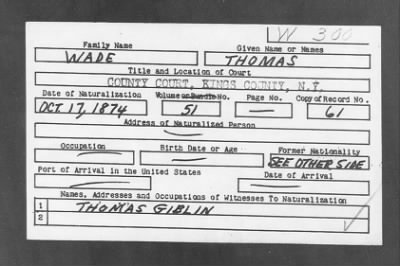 W 300
Family Name Given Name or Names
WADE THOMAS
Title and Location of Court
COUNTY COURT, KINGS COUNTY, N.Y.
Date of Naturalization Volume or Bundle No. Page No. Copy of Record No.
OCT. 17, 1874 51 — 61
Address of Naturalized Person
—
Occupation Birth Date or Age Former Nationality
— — SEE OTHER SIDE
Port of Arrival in the United States Date of Arrival
— —
Names, Addresses and Occupations of Witnesses To Naturalization
1 THOMAS GIBLIN
2